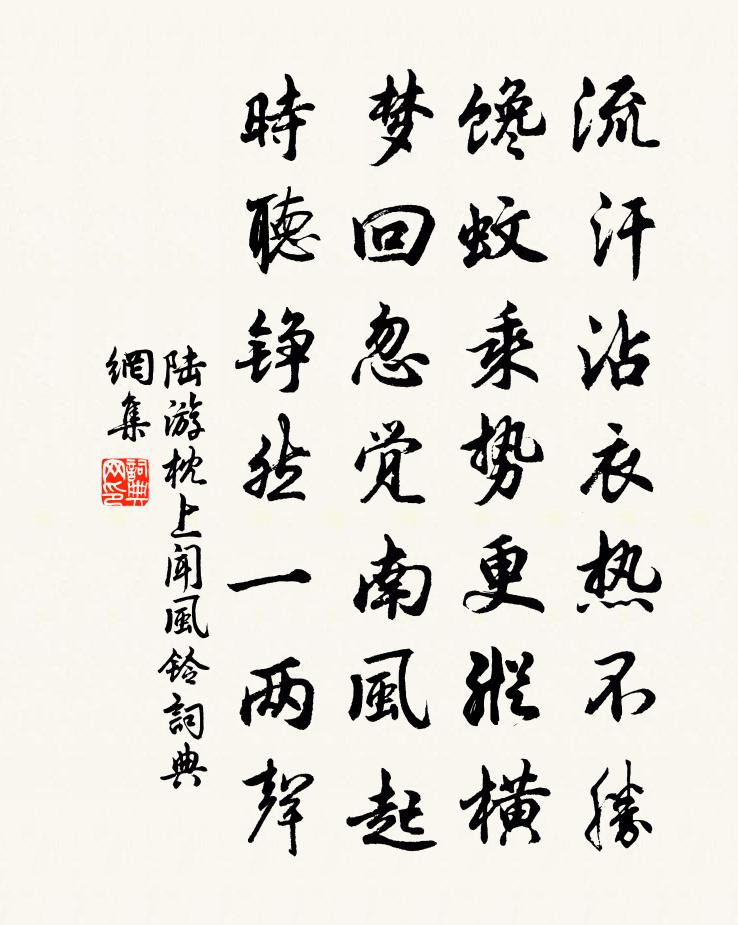 流汗沾衣热不勝
馋蚊乘势更縱横
梦回忽觉南風起
時聽铮然一两聲
陆游枕上闻風鈴詞典
網集
詞典网印